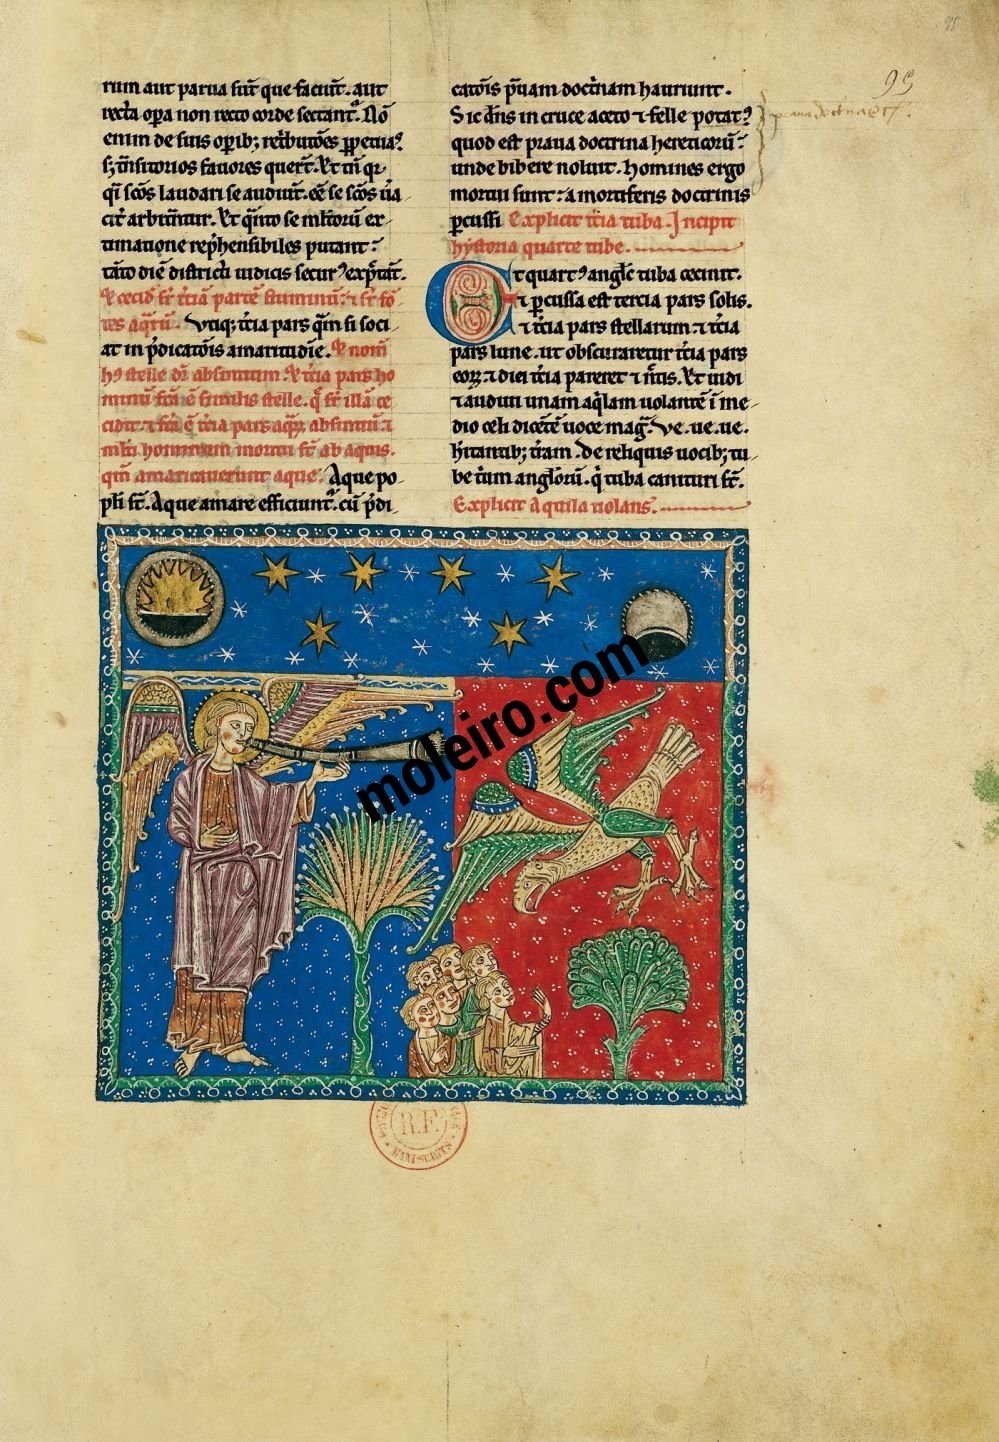 rum aut parua sūt que faciūt. aut
recta opa non recto corde sectant̄. Nō
enim de suis opib; retͥbutōes ꝑpetuas
s; tͣnsitorios fauores querūt. Et tn̄ qͥ
qͥ scōs laudari se audiūt. eē se scōs
arbitͣntur. Et qͣnto se
extimatione rep̄hensibiles putant
tāto diē districti iudicis securꝰ exp̄tāt.
Et cecid̄ sr̄ tͥciā partē fluminū: ⁊ sr̄ fō
tes aqͣrū. Vtiq; tͥcia pars
at in p̄dicatōis amaritudīe. Et nom̄
hꝰ stelle dr̄ absintium. Et tͥcia pars ho
minū fc̄a ē similis stelle. q̄ sr̄ illā ce
cidit. ⁊ fc̄a ē tͥcia pars aqͣꝝ absintiū ⁊
ml̄ti hominum mortui st̄ ab aquis.
qm̄ amaricauerunt aque. Aque po
pli st̄. Aque amare efficiunt̄. cū p̄di
catōis p̄uam doctͥnam hauriunt.
Sic dn̄s in cruce aceto ⁊ felle potatꝰ
quod est praua doctrina hereticorū
unde bibere noluit. Homines ergo
mortui sunt: a mortiferis doctrinis
ꝑcussi Explicit tͥcia tuba. Incipit
hystoria quarte tube.
Et quartꝰ angl̄s tuba cecinit.
⁊ ꝑcussa est tercia pars solis.
⁊ tͥcia pars stellarum ⁊ tͥcia
pars lune. ut obscuraretur tͥcia pars
eoꝝ. ⁊ diei tͥcia pareret ⁊ nͦtis. Et uidi
⁊ audiui unam aqͥlam uolantē ī me
dio celi dicētē uoce magͣ. Ve. ue. ue.
hͣitantib; tͤram. De reliquis uocib; tu
be tͥum angl̄orū. qͥ tuba canituri st̄.
Explicit aquila uolans.
95
moleiro.com
R.F.